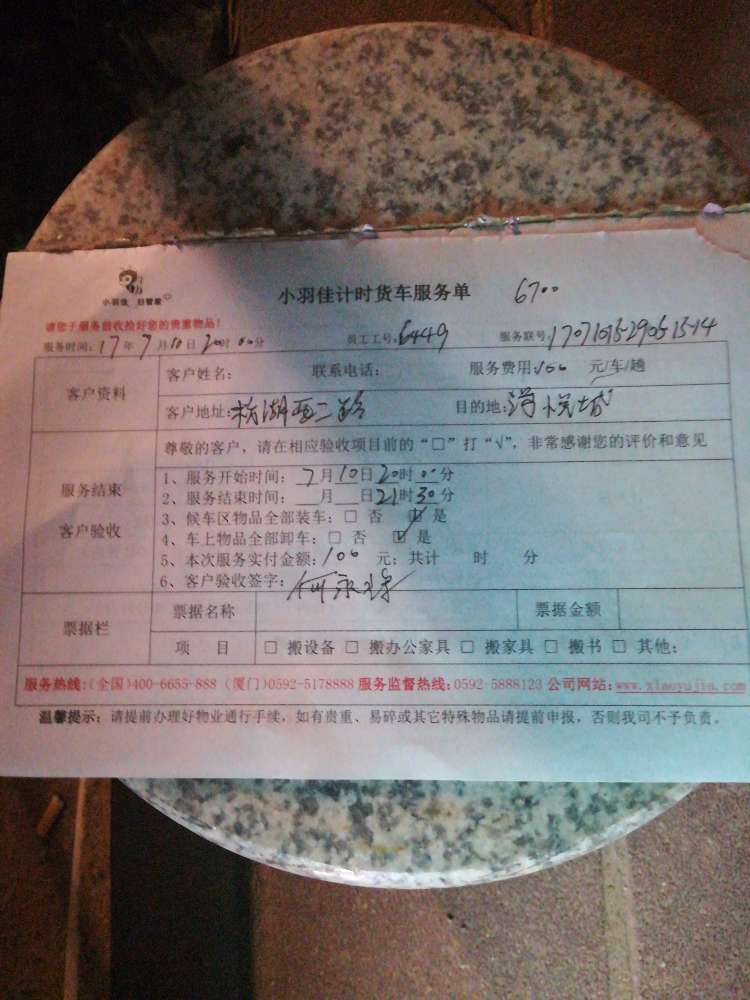 小羽佳 好管家
小羽佳计时货车服务单 6700
请您于服务前收捡好您的贵重物品!
服务时间: 17年7月10日20时00分 员工工号: 6449 服务联号: 170710152905-15-14
客户资料
客户姓名: 联系电话: 服务费用: 100 元/车/趟
客户地址: 目的地:
尊敬的客户,请在相应验收项目前的“□”打“√”,非常感谢您的评价和意见
服务结束
客户验收
1、服务开始时间: 7月10日20时00分
2、服务结束时间: 月 日21时30分
3、候车区物品全部装车: □ 否 ☑ 是
4、车上物品全部卸车: □ 否 ☑ 是
5、本次服务实付金额: 100 元; 共计 时 分
6、客户验收签字:
票据栏
票据名称 票据金额
项 目 □ 搬设备 □ 搬办公家具 □ 搬家具 □ 搬书 □ 其他:
服务热线:(全国)400-6655-888 (厦门)0592-5178888 服务监督热线:0592-5888123 公司网站:www.xiaoyujia.com
温馨提示: 请提前办理好物业通行手续, 如有贵重、易碎或其它特殊物品请提前申报, 否则我司不予负责。